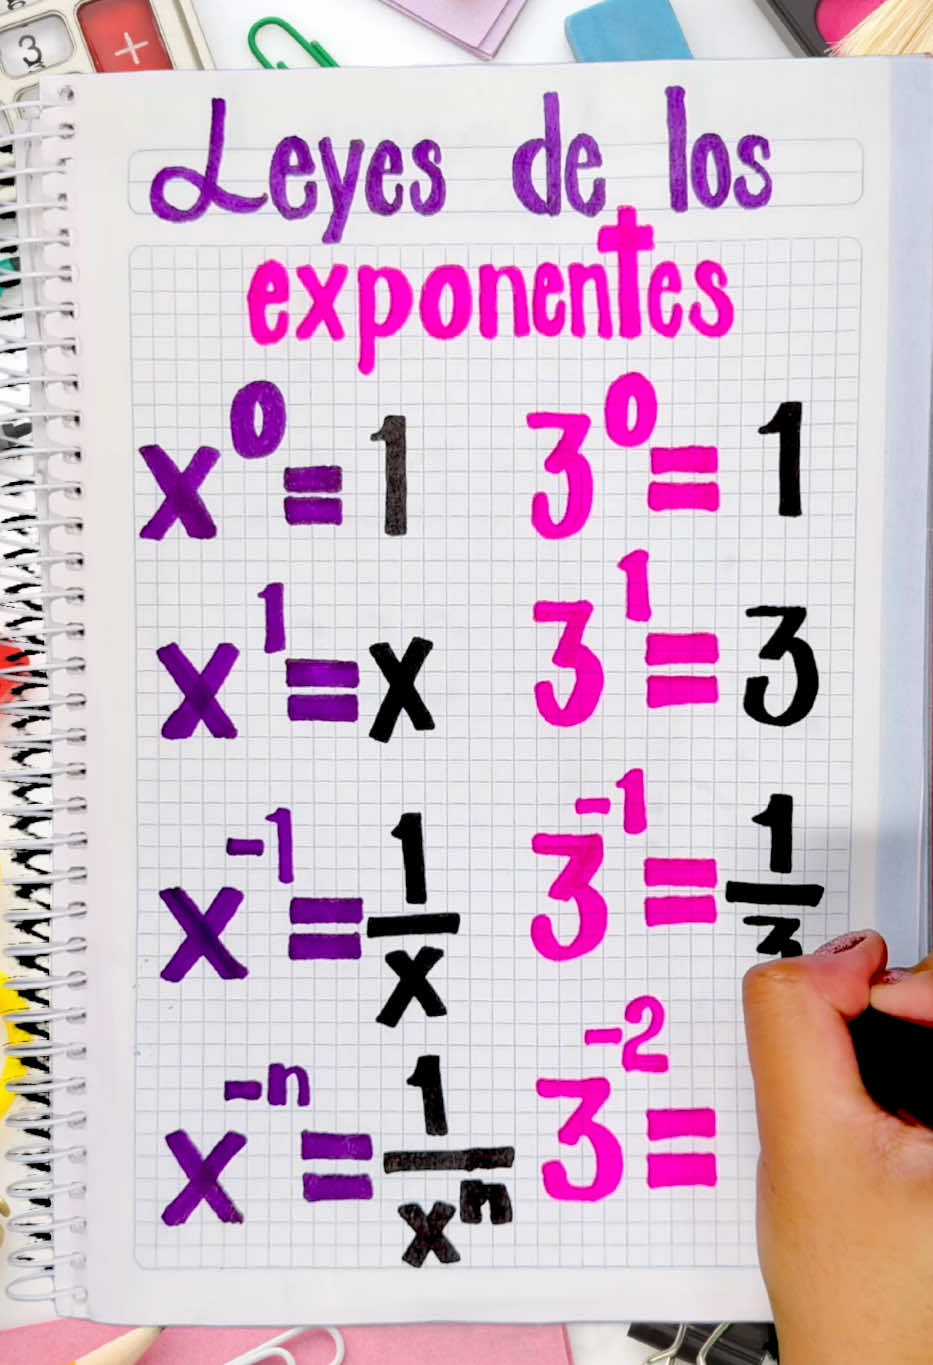 3 +
Leyes de los
exponentes
x⁰ = 1 3⁰ = 1
x¹ = x 3¹ = 3
x⁻¹ = 1/x 3⁻¹ = 1/3
x⁻ⁿ = 1/xⁿ 3⁻² =